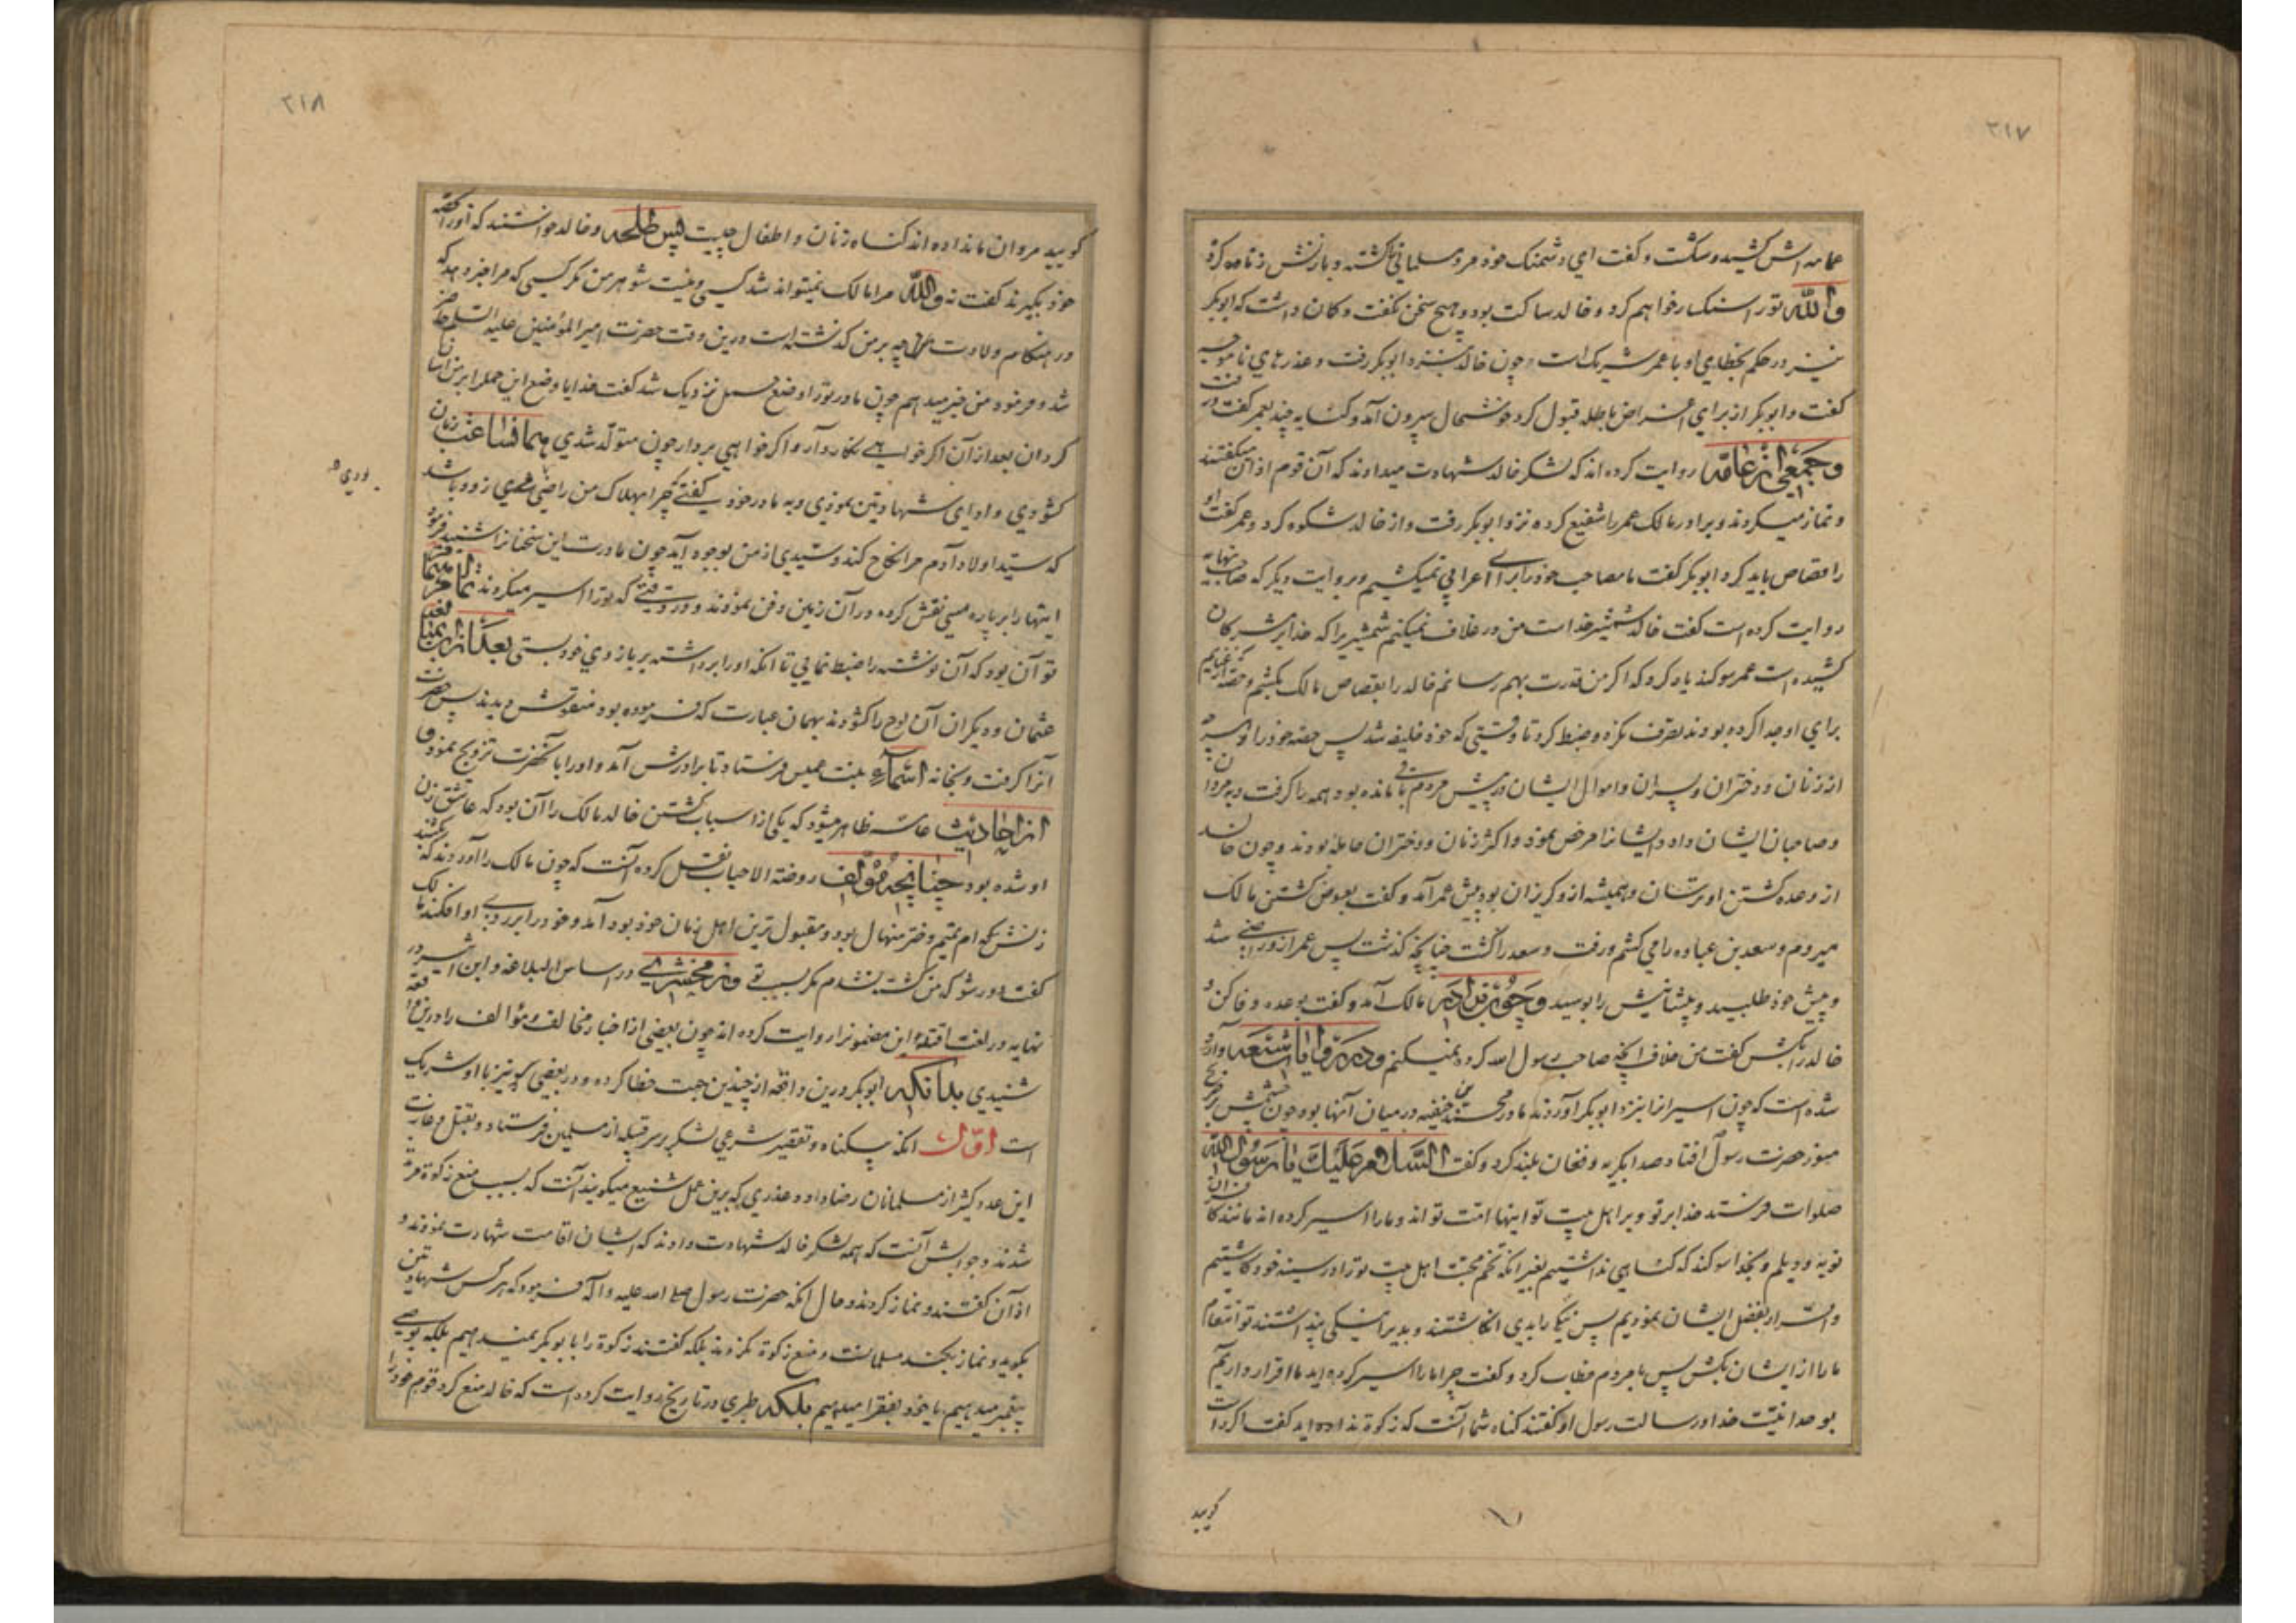 ۲۱۷
عمامه اش کشید و شکست و گفت ای دشمنک خود مرد مسلمانی کشته و با زنش زنا کرده
والله تو را سنگسار خواهم کرد و خالد ساکت بود و هیچ سخن نگفت و گمان داشت که ابوبکر
نیز در حکم بخطای او با عمر شریک است و چون خالد بنزد ابوبکر رفت و عذرهای ناموجه
گفت و ابوبکر از برای اغراض باطله قبول کرد خوشحال بیرون آمد و کنایه چند بعمر گفت و رفت
وجمعی از عامه روایت کرده اند که لشکر خالد شهادت میدادند که آن قوم اذان میگفتند
و نماز میکردند و برادر مالک عمر را شفیع کرده نزد ابوبکر رفت و از خالد شکوه کرد و عمر گفت او
را قصاص باید کرد ابوبکر گفت ما مصاحب خود را برای اعرابی نمیکشیم و بروایت دیگر که صاحب نهایه
روایت کرده است گفت خالد شمشیر خداست من در غلاف نمیکنم شمشیریرا که خدا بر مشرکان
کشیده است عمر سوگند یاد کرد که اگر من قدرت بهم رسانم خالد را بقصاص مالک بکشم و حصه که از غنایم
برای او جدا کرده بودند تصرف نکرد و ضبط کرد تا وقتی که خود خلیفه شد پس حصه خود را و هر چه
از زنان و دختران و پسران و اموال ایشان در پیش مردم باقی مانده بود همه را گرفت و بمردان
و صاحبان ایشان داد و ایشانرا مرخص نمود و اکثر زنان و دختران حامله بودند و چون خالد
از وعده کشتن او ترسان و همیشه از و گریزان بود پیش عمر آمد و گفت بعوض کشتن مالک
میروم و سعد بن عباده را می کشم و رفت و سعد را کشت چنانچه گذشت پس عمر ازو راضی شد
و پیش خود طلبید و پیشانیش را بوسید و چون برادر مالک آمد و گفت بوعده وفا کن و
خالد را بکش گفت من خلاف آنچه صاحب رسول الله کرد نمیکنم و در روایات شیعه وارد
شده است که چون اسیرانرا بنزد ابوبکر آوردند مادر محمد بن حنفیه در میان آنها بود چون چشمش بر ضریح
منور حضرت رسول افتاد صدا بگریه و فغان بلند کرد و گفت السلام علیک یا رسول الله
صلوات فرستد خدا بر تو و بر اهل بیت تو اینها امت تو اند و ما را اسیر کرده اند مانند کافران
نوبه و دیلم و بخدا سوگند که گناهی نداشتیم بغیر آنکه تخم محبت اهل بیت تو را در سینه خود کاشتیم
و اقرار بفضل ایشان نمودیم پس نیک را بدی انگاشتند و بد را نیکی پنداشتند تو انتقام
ما را از ایشان بکش پس با مردم خطاب کرد و گفت چرا ما را اسیر کرده اید ما اقرار داریم
بوحدانیت خدا و رسالت رسول او گفتند گناه شما آنست که زکوة نداده اید گفت اگر راست
گویید
۲۱۸
گویید مردان ما نداده اند گناه زنان و اطفال چیست پس طلحه و خالد خواستند که او را بحصه
خود بگیرند گفت نه والله مرا مالک نمیتواند شد کسی و نیست شوهر من مگر کسی که مرا خبر دهد که
در هنگام ولادت من چه بر من گذشته است درین وقت حضرت امیر المؤمنین علیه السلام حاضر
شد و فرمود من خبر میدهم چون مادر تو را وضع حمل نزدیک شد گفت خدایا وضع این حمل را بر من آسان
گردان بعد از آن اگر خواهی نگاه دار و اگر خواهی بردار چون متولد شدی هما ساعت زبان
گشودی و ادای شهادتین نمودی و به مادر خود گفتی چرا بهلاک من راضی شدی زود باشد
که سید اولاد آدم مرا نکاح کند و سیدی از من بوجود آید چون مادرت این سخنانرا شنید فرمود
اینها را بر پاره مسی نقش کرده در آن زمین دفن نمودند و در وقتی که تو را اسیر میکردند تمام همّ
تو آن بود که آن نوشته را ضبط نمایی تا آنکه او را برداشته بر بازوی خود بستی بعد از آن
عثمان و دیگران آن لوح را گشودند بهمان عبارت که فرموده بود منقوش دیدند پس حضرت
آنرا گرفت و بخانه اسماء بنت عمیس فرستاد تا برادرش آمد و او را با آنحضرت تزویج نمود و
از احادیث عامه ظاهر میشود که یکی از اسباب کشتن خالد مالک را آن بود که عاشق زن
او شده بود چنانچه مؤلف روضة الاحباب نقل کرده است که چون مالک را آوردند که بکشند
زنش که ام تمیم دختر منهال بود و مقبول ترین اهل زمان خود بود آمد و خود را بر روی او افکند مالک
گفت دور شو که من کشته نشدم مگر بسبب تو و زمخشری در اساس البلاغه و ابن اثیر در
نهایه در لغت اقتله این مضمونرا روایت کرده اند چون بعضی از اخبار مخالف و مؤالف را درین واقعه
شنیدی بدانکه ابوبکر درین واقعه از چندین جهت خطا کرده و در بعضی عمر نیز با او شریک
است اوّل آنکه بیگناه و تقصیر شرعی لشکر بر سر قبیله از مسلمین فرستاد و بقتل و غارت
این عدد کثیر از مسلمانان رضا داد و عذری که برین عمل شنیع میگویند آنست که بسبب منع زکوة مرتد
شدند و جوابش آنست که همه لشکر خالد شهادت دادند که ایشان اقامت شهادت نمودند و
اذان گفتند و نماز کردند و حال آنکه حضرت رسول صلی الله علیه واله فرمود که هر کس شهادتین
بگوید و نماز بکند مسلمانست و منع زکوة نکردند بلکه گفتند زکوة را بابوبکر نمیدهیم بلکه بوصی
پیغمبر میدهیم یا خود بفقرا میدهیم بلکه طبری در تاریخ روایت کرده است که خالد منع کرد قوم خود را